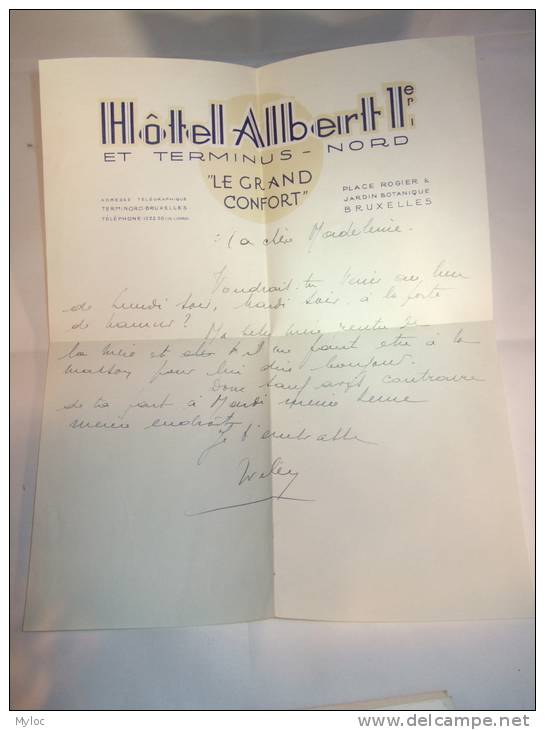 Hôtel Albert 1er
ET TERMINUS - NORD
"LE GRAND
CONFORT"
ADRESSE TÉLÉGRAPHIQUE
TERMINORD-BRUXELLES
TÉLÉPHONE:
PLACE ROGIER &
JARDIN BOTANIQUE
BRUXELLES
Ma chère Madeleine.
Voudrait-tu venir au lieu
de lundi soir, mardi soir à la porte
de Namur? Ma mère rentre de
la mer et il me faut être à la
maison pour lui dire bonjour.
Donc sauf avis contraire
de ta part à Mardi même
même endroit
Je t'embrasse
Myloc
www.delcampe.net